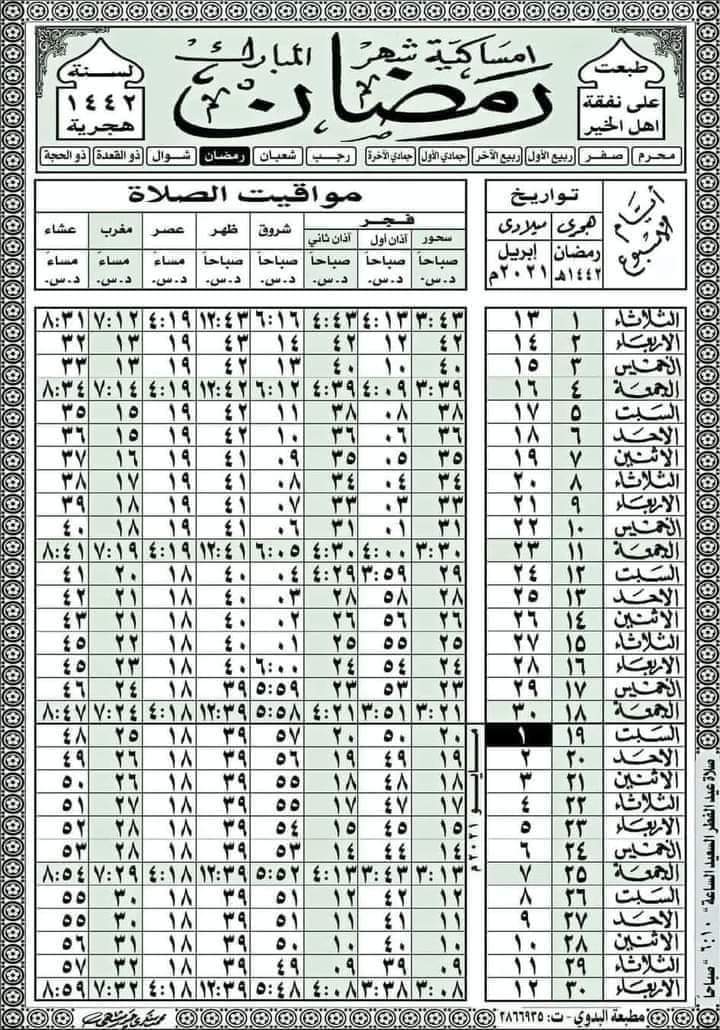 طبعت على نفقة اهل الخير
امساكية شهر رمضان المبارك
لسنة ١٤٤٢ هجرية
محرم صفر ربيع الأول ربيع الآخر جمادي الأول جمادي الآخرة رجب شعبان رمضان شوال ذو القعدة ذو الحجة
أيام الأسبوع تواريخ مواقيت الصلاة
هجرى ميلادى فجر شروق ظهر عصر مغرب عشاء
سحور آذان أول آذان ثاني
رمضان ١٤٤٢هـ إبريل ٢٠٢١م صباحاً صباحاً صباحاً صباحاً صباحاً مساءً مساءً مساءً
د.س. د.س. د.س. د.س. د.س. د.س. د.س. د.س.
الثلاثاء ١ ١٣ ٣:٤٣ ٤:١٣ ٤:٤٣ ٦:١٦ ١٢:٤٣ ٤:١٩ ٧:١٢ ٨:٣١
الاربعاء ٢ ١٤ ٤٢ ١٢ ٤٢ ١٤ ٤٣ ١٩ ١٣ ٣٢
الخميس ٣ ١٥ ٤٠ ١٠ ٤٠ ١٣ ٤٢ ١٩ ١٣ ٣٣
الجمعة ٤ ١٦ ٣:٣٩ ٤:٠٩ ٤:٣٩ ٦:١٢ ١٢:٤٢ ٤:١٩ ٧:١٤ ٨:٣٤
السبت ٥ ١٧ ٣٨ ٠٨ ٣٨ ١١ ٤٢ ١٩ ١٥ ٣٥
الاحد ٦ ١٨ ٣٦ ٠٦ ٣٦ ١٠ ٤٢ ١٩ ١٥ ٣٦
الاثنين ٧ ١٩ ٣٥ ٠٥ ٣٥ ٠٩ ٤١ ١٩ ١٦ ٣٧
الثلاثاء ٨ ٢٠ ٣٤ ٠٤ ٣٤ ٠٨ ٤١ ١٩ ١٧ ٣٨
الاربعاء ٩ ٢١ ٣٣ ٠٣ ٣٣ ٠٧ ٤١ ١٩ ١٨ ٣٩
الخميس ١٠ ٢٢ ٣١ ٠١ ٣١ ٠٦ ٤١ ١٩ ١٨ ٤٠
الجمعة ١١ ٢٣ ٣:٣٠ ٤:٠٠ ٤:٣٠ ٦:٠٥ ١٢:٤١ ٤:١٩ ٧:١٩ ٨:٤١
السبت ١٢ ٢٤ ٢٩ ٣:٥٩ ٤:٢٩ ٠٤ ٤٠ ١٨ ٢٠ ٤١
الاحد ١٣ ٢٥ ٢٨ ٥٨ ٢٨ ٠٣ ٤٠ ١٨ ٢١ ٤٢
الاثنين ١٤ ٢٦ ٢٦ ٥٦ ٢٦ ٠٢ ٤٠ ١٨ ٢١ ٤٣
الثلاثاء ١٥ ٢٧ ٢٥ ٥٥ ٢٥ ٠١ ٤٠ ١٨ ٢٢ ٤٥
الاربعاء ١٦ ٢٨ ٢٤ ٥٤ ٢٤ ٦:٠٠ ٤٠ ١٨ ٢٣ ٤٥
الخميس ١٧ ٢٩ ٢٣ ٥٣ ٢٣ ٥:٥٩ ٣٩ ١٨ ٢٤ ٤٦
الجمعة ١٨ ٣٠ ٣:٢١ ٣:٥١ ٤:٢١ ٥:٥٨ ١٢:٣٩ ٤:١٨ ٧:٢٤ ٨:٤٧
السبت ١٩ ١ ٢٠ ٥٠ ٢٠ ٥٧ ٣٩ ١٨ ٢٥ ٤٨
الاحد ٢٠ ٢ ١٩ ٤٩ ١٩ ٥٦ ٣٩ ١٨ ٢٦ ٤٩
الاثنين ٢١ ٣ ١٨ ٤٨ ١٨ ٥٥ ٣٩ ١٨ ٢٦ ٥٠
الثلاثاء ٢٢ ٤ ١٧ ٤٧ ١٧ ٥٥ ٣٩ ١٨ ٢٧ ٥١
الاربعاء ٢٣ ٥ ١٥ ٤٥ ١٥ ٥٤ ٣٩ ١٨ ٢٨ ٥٢
الخميس ٢٤ ٦ ١٤ ٤٤ ١٤ ٥٣ ٣٩ ١٨ ٢٨ ٥٣
الجمعة ٢٥ ٧ ٣:١٣ ٣:٤٣ ٤:١٣ ٥:٥٢ ١٢:٣٩ ٤:١٨ ٧:٢٩ ٨:٥٤
السبت ٢٦ ٨ ١٢ ٤٢ ١٢ ٥١ ٣٩ ١٨ ٣٠ ٥٥
الاحد ٢٧ ٩ ١١ ٤١ ١١ ٥١ ٣٩ ١٨ ٣٠ ٥٥
الاثنين ٢٨ ١٠ ١٠ ٤٠ ١٠ ٥٠ ٣٩ ١٨ ٣١ ٥٦
الثلاثاء ٢٩ ١١ ٠٩ ٣٩ ٠٩ ٤٩ ٣٩ ١٨ ٣٢ ٥٧
الاربعاء ٣٠ ١٢ ٣:٠٨ ٣:٣٨ ٤:٠٨ ٥:٤٨ ١٢:٣٩ ٤:١٨ ٧:٣٢ ٨:٥٩
مايو ٢٠٢١م
صلاة عيد الفطر السعيد الساعة "٦:١٠" صباحا
مطبعة البدوي - ت: ٢٨٦٦٩٣٥